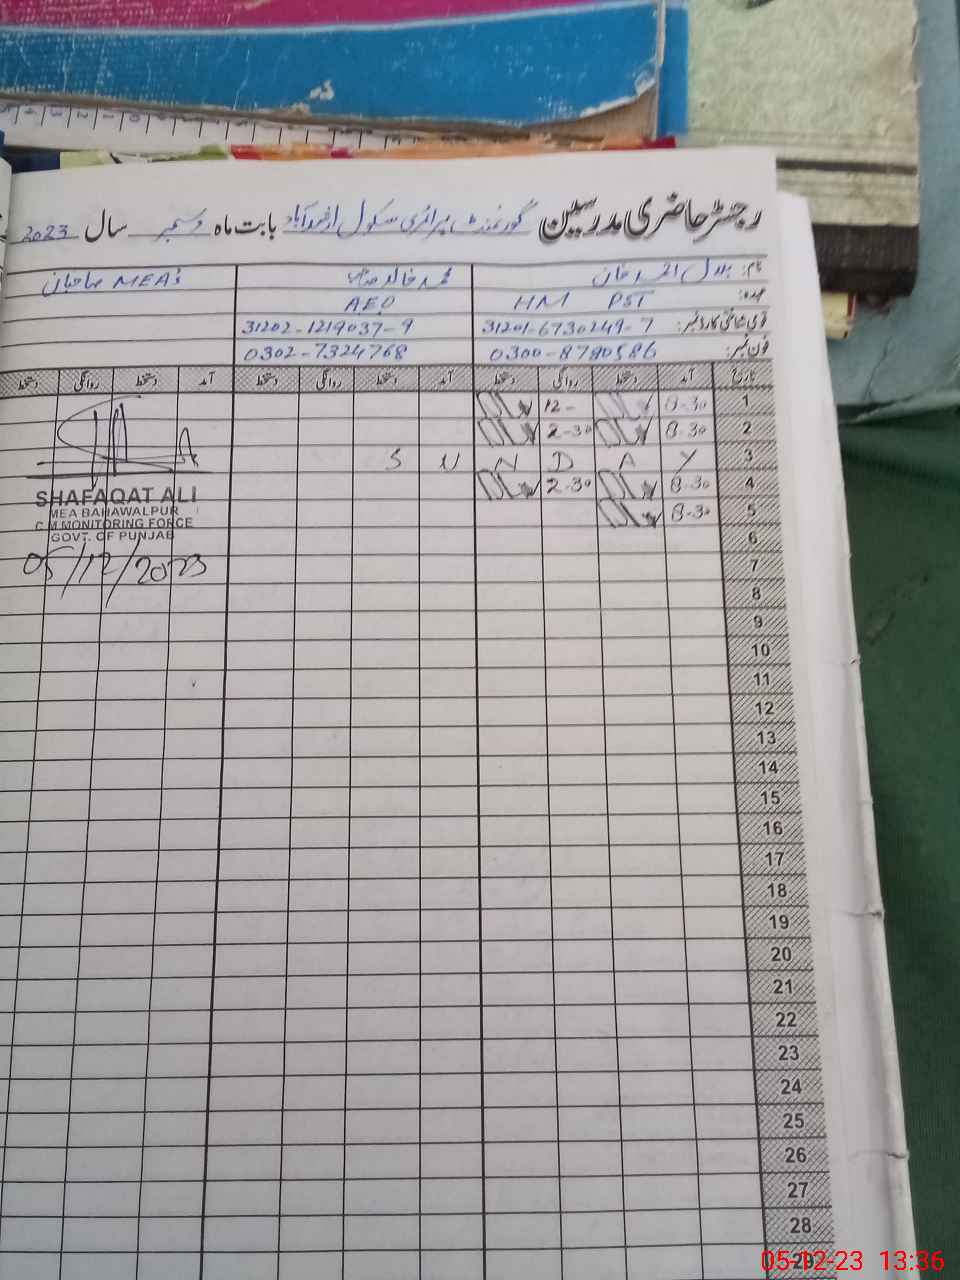 رجسٹر حاضری مدرسین گورنمنٹ پرائمری سکول بابت ماہ دسمبر سال 2023
نام: بلال احمد خان محمد خالد صاحب MEA's صاحبان
عہدہ: HM PST AEO
قومی شناختی کارڈ نمبر: 31201-6730249-7 31202-1219037-9
فون نمبر: 0300-8790586 0302-7324768
تاریخ آمد دستخط روانگی دستخط آمد دستخط روانگی دستخط آمد دستخط روانگی دستخط
1 8-30 12-
2 8-30 2-30
3 S U N D A Y
4 8-30 2-30
5 8-30
6
7
8
9
10
11
12
13
14
15
16
17
18
19
20
21
22
23
24
25
26
27
28
29
SHAFAQAT ALI
MEA BAHAWALPUR
C M MONITORING FORCE
GOVT. OF PUNJAB
05/12/2023
05-12-23 13:36